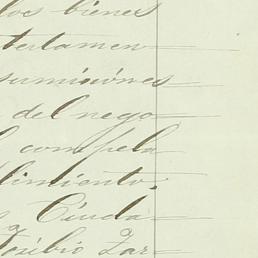 los bienes
testamen
sumisiones
del nego
compela
limiento,
Ciuda-
Toribio Zar-